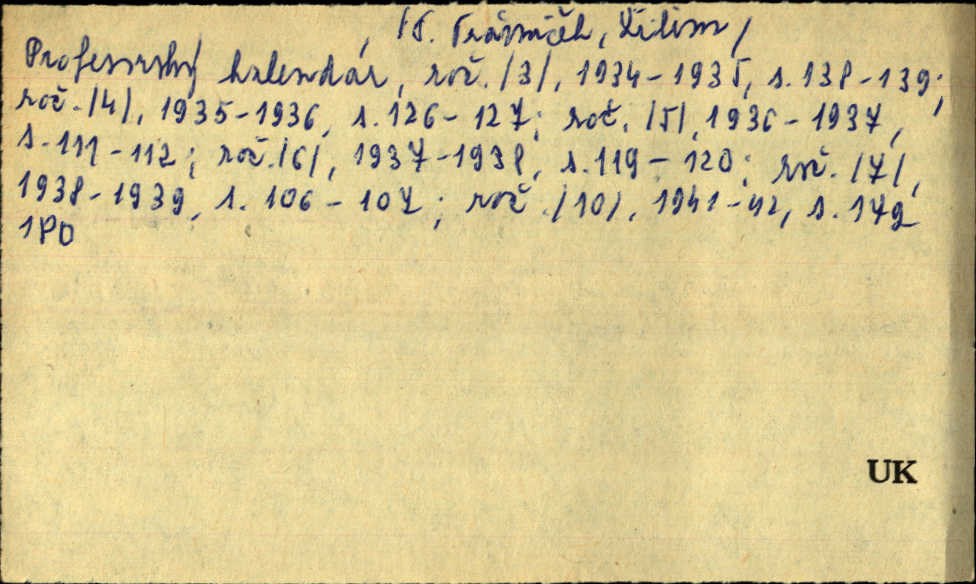 /T. Trávníček, Žilina/
Profesorský kalendár, roč. /3/, 1934-1935, s. 138-139;
roč. /4/, 1935-1936, s. 126-127; roč. /5/, 1936-1937,
s. 111-112; roč. /6/, 1937-1938, s. 119-120; roč. /7/,
1938-1939, s. 106-107; roč. /10/, 1941-42, s. 179
1PD
UK